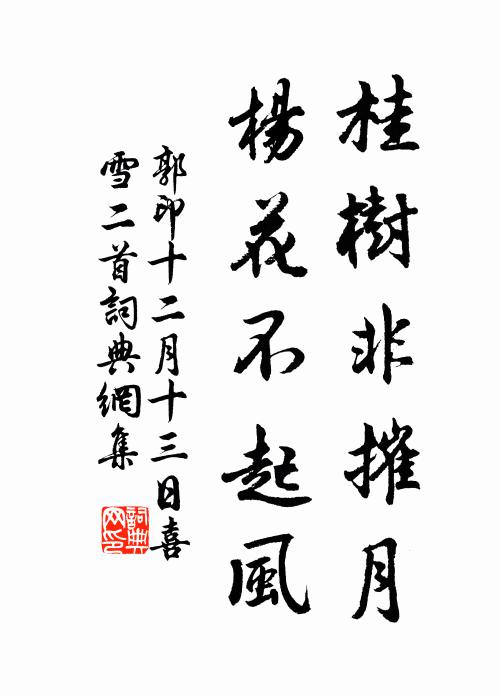 桂樹非摧月
楊花不起風
郭印十二月十三日喜
雪二首詞典網集
詞典
网印